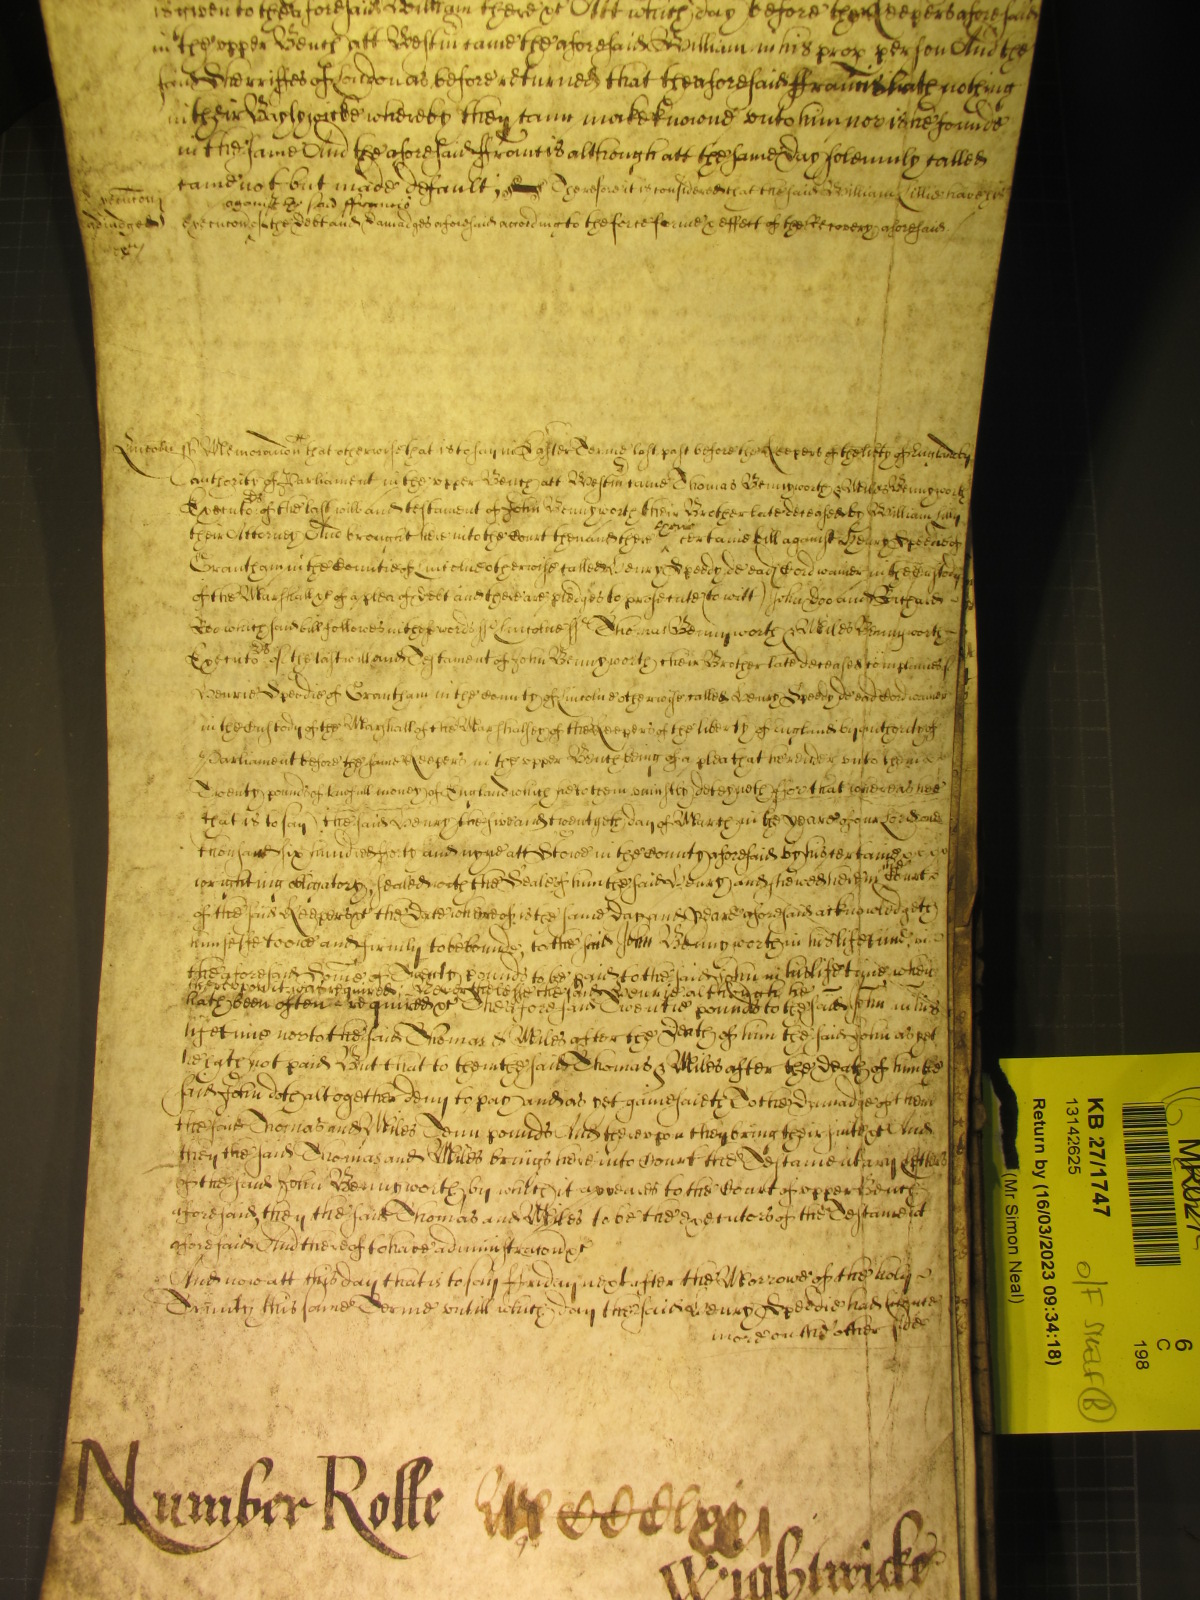 is given to the aforesaid William there &c Att which day before the Keepers aforesaid
in the upper Bench att Westm came the aforesaid William in his prop person And the
said Sherriffes of London as before returned that the aforesaid ffrancis hath nothing
in their Baylywicke whereby they cann make knowne unto him nor is he founde
in the same And the aforesaid ffrancis although att the same day solemnly called
came not but made default Therefore it is considered that the said William have his
against the said ffrancis
Execucon
adjudged
execucon of the Debt and Damadges aforesaid according to the force forme & effect of the Recovery aforesaid
Lincolne ss Memorandm that otherwise that is to say in Easter Terme last past before the Keepers of the liberty of England by
authority of Parliament in the upper Bench att Westm came Thomas Bennyworth & Miles Bennyworth
Executors of the last will and testament of John Bennyworth their Brother late deceased by William
their Attorney And brought here into the Court then and there certaine bill against Henry Speedie of
Grantham in the Countie of Lincolne otherwise called Henry Speedy de ead Cordwainer in the Custody
of the Marshall &c of a plea of Debt and there are pledges to prosecute (to witt) John Doo and Richard
Roo which said bill followes in these words ss Lincolne ss Thomas Bennyworth & Miles Bennyworth
Executors of the last will and Testament of John Bennyworth their Brother late deceased complaine of
Henrie Speedie of Grantham in the County of Lincolne otherwise called Henry Speedy de ead Cordwainer
in the Custody of the Marshall of the Marshalsey of the Keepers of the liberty of England by authority of
Parliament before the same Keepers in the upper Bench being of a plea that he render unto them
Twenty pounds of lawfull money of England which he to them uniustly deteyneth ffor that whereas hee
that is to say the said Henry the five and twentyeth day of March in the yeare of our Lord one
thousand six hundred forty and nyne att Stowe in the County aforesaid by his certaine
wrighting obligatory sealed with the Seale of him the said Henry and shewed here in Court
of the said Keepers &c the Date whereof is the same day and yeare aforesaid acknowledgeth
himselfe to owe and firmly to be bound to the said John Bennyworth in his life time in
the aforesaid Somme of Twenty Pounds to be paid to the said John in his life time when
thereupon it was required Neverthelesse the said Henrie although he
hath been often required &c The aforesaid Twentie pounds to the said John in his
life time nor to the said Thomas & Miles after the Death of him the said John as yet
he hath not paid But that to them the said Thomas & Miles after the Death of him the
said John doth altogether deny to pay and as yet gainesaieth To the Damadge of them
the said Thomas and Miles Tenn pounds And thereupon they bring their suite &c And
then the said Thomas and Miles brings here into Court the Testamentary letters
of the said John Bennyworth by which it appeares to the Court of upper Bench
aforesaid then the said Thomas and Miles to be the executors of the Testament
aforesaid And thereof to have administracon &c
And now att this day that is to say ffriday next after the Morrowe of the holy
Trinity this same Terme untill which day the said Henry Speedie had
more on the other side
Number Rolle
Wightwicke
KB 27/1747
13142625
Return by (16/03/2023 09:34:18)
(Mr Simon Neal)
6
C
198